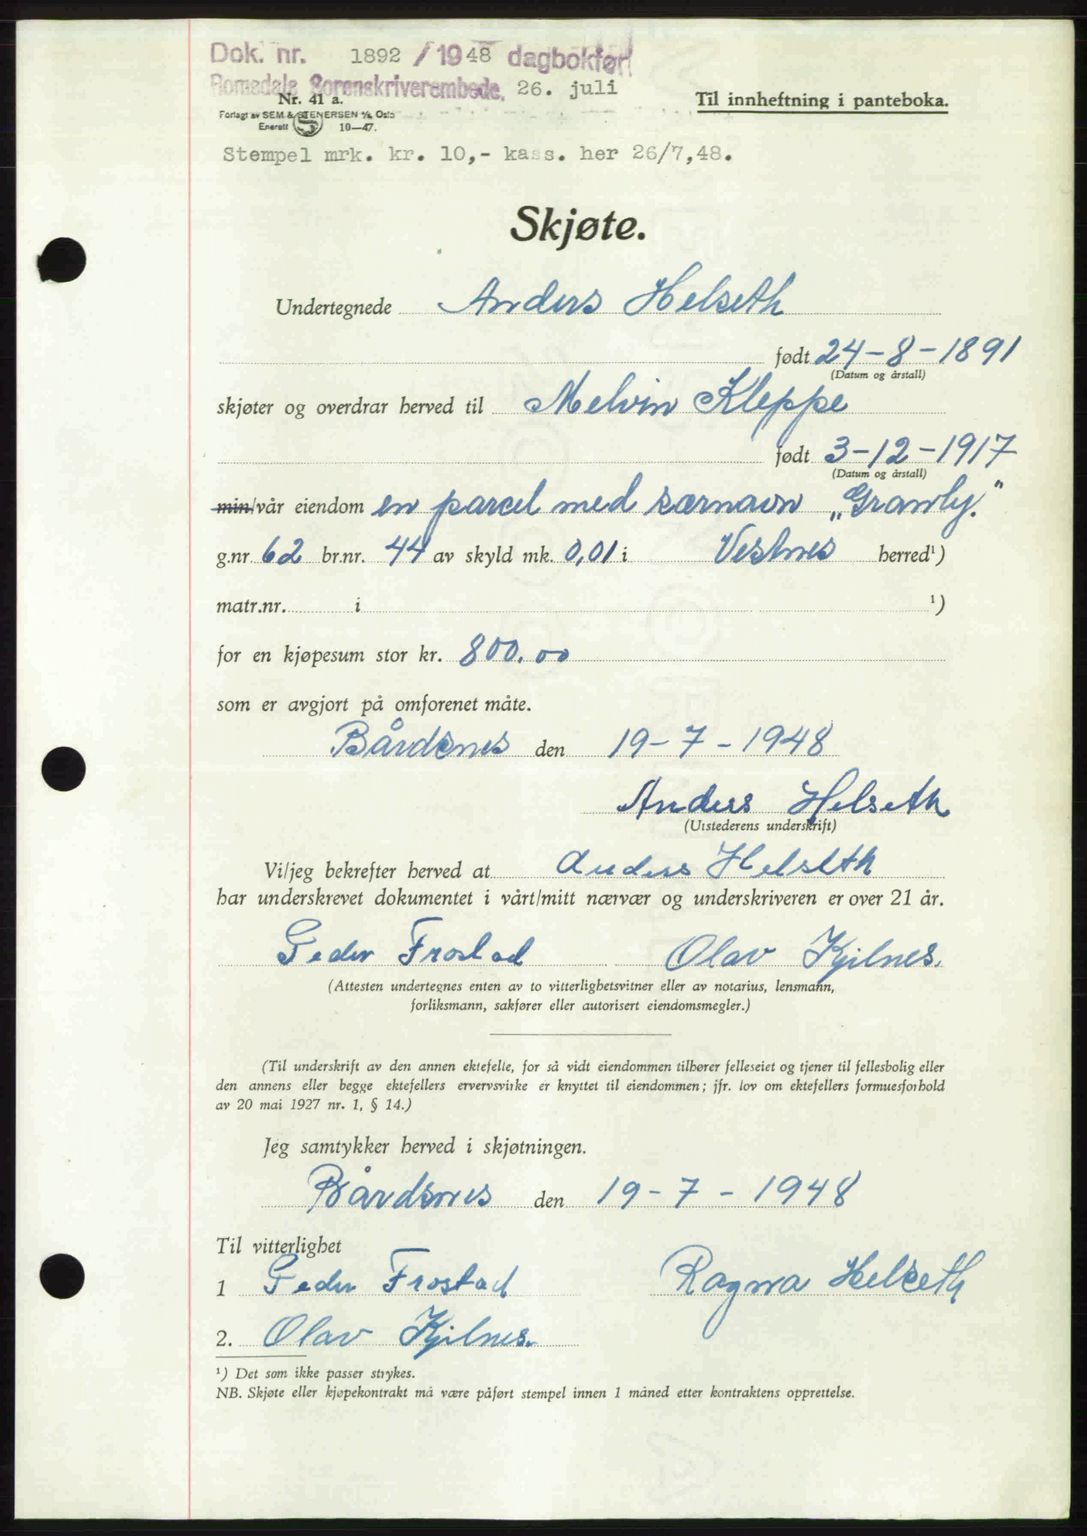 Dok. nr. 1892 / 1948 dagbokført
Romsdals Sorenskriverembede, 26. juli
Nr. 41 a.
Til innheftning i panteboka.
Forlagt av SEM & STENERSEN A/S, Oslo
Enerett 10—47.
Stempel mrk. kr. 10,- kass. her 26/7,48.
Skjøte.
Undertegnede Anders Helseth
født 24-8-1891
(Datum og årstall)
skjøter og overdrar herved til Melvin Kleppe
født 3-12-1917
(Datum og årstall)
min/vår eiendom en parcel med særnavn „Granly."
g.nr. 62 br.nr. 44 av skyld mk. 0,01 i Vestnes herred¹)
matr.nr. i ¹)
for en kjøpesum stor kr. 800.00
som er avgjort på omforenet måte.
Bårdsnes den 19-7-1948
Anders Helseth
(Utstederens underskrift)
Vi/jeg bekrefter herved at Anders Helseth
har underskrevet dokumentet i vårt/mitt nærvær og underskriveren er over 21 år.
Peder Frostad Olav Kjilnes.
(Attesten undertegnes enten av to vitterlighetsvitner eller av notarius, lensmann,
forliksmann, sakfører eller autorisert eiendomsmegler.)
(Til underskrift av den annen ektefelle, for så vidt eiendommen tilhører felleseiet og tjener til fellesbolig eller
den annens eller begge ektefellers ervervsvirke er knyttet til eiendommen; jfr. lov om ektefellers formuesforhold
av 20 mai 1927 nr. 1, § 14.)
Jeg samtykker herved i skjøtningen.
Bårdsnes den 19-7-1948
Til vitterlighet
1 Peder Frostad Ragna Helseth
2. Olav Kjilnes.
¹) Det som ikke passer strykes.
NB. Skjøte eller kjøpekontrakt må være påført stempel innen 1 måned etter kontraktens opprettelse.